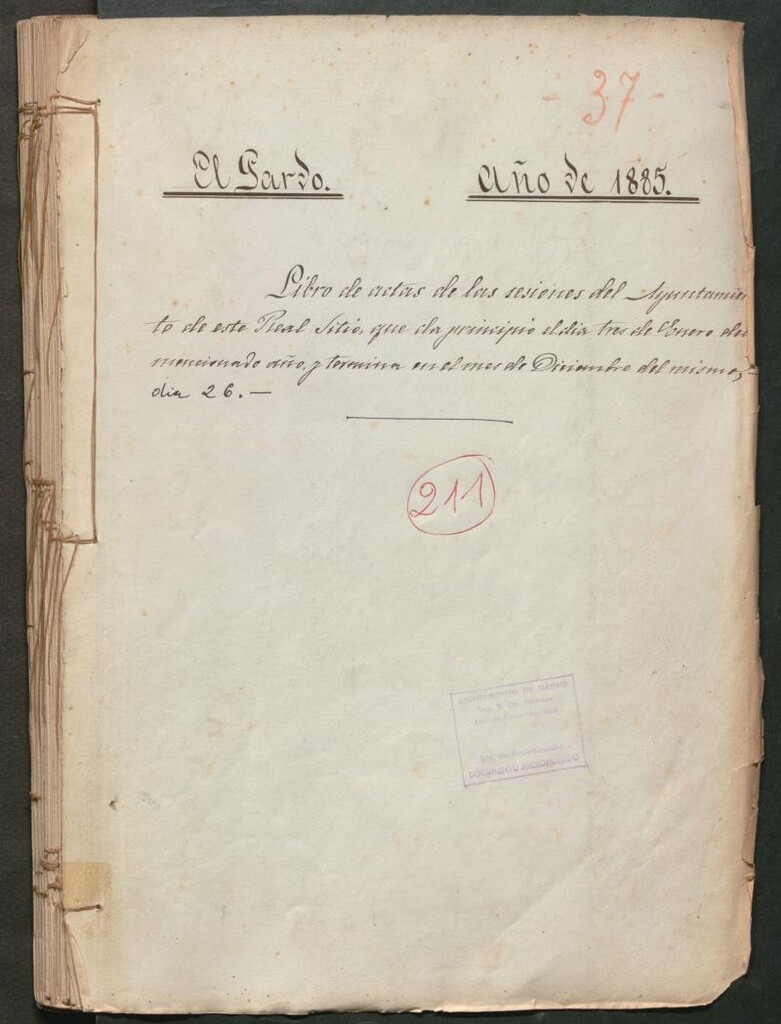 - 37 -
El Pardo. Año de 1885.
Libro de actas de las sesiones del Ayuntamien
to de este Real Sitio, que da principio el dia tres de Enero del
mencionado año, y termina en el mes de Diciembre del mismo,
dia 26. —
211
AYUNTAMIENTO DE MADRID
DOCUMENTO MICROFILMADO